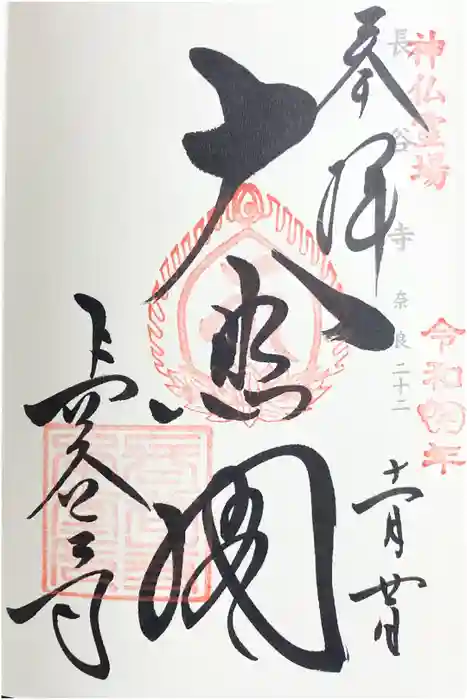 神仏霊場
長谷寺 奈良二十二
奉拝
令和四年
十一月廿日
大悲閣
長谷寺